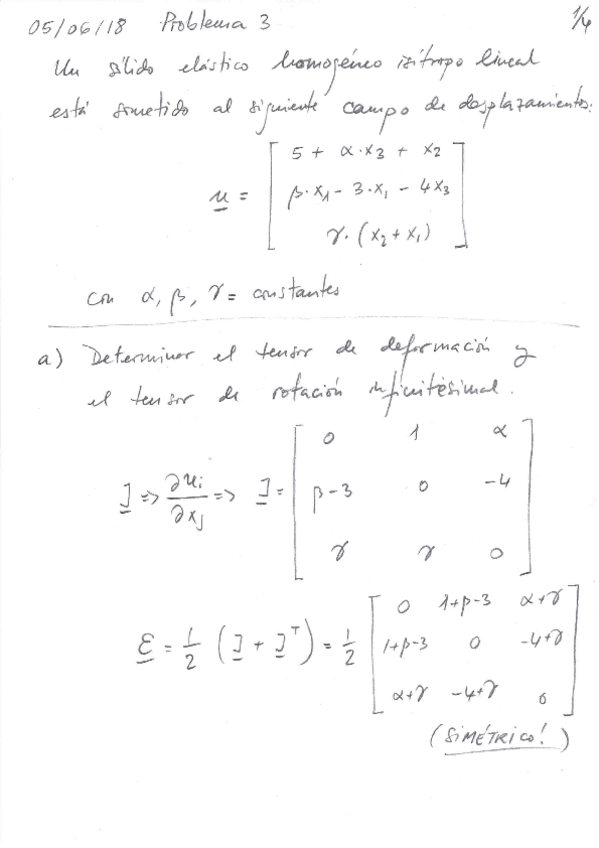 05/06/18 Problema 3 1/4
Un sólido elástico homogéneo isótropo lineal
está sometido al siguiente campo de desplazamientos:
u = [ 5 + α·x3 + x2
β·x1 - 3·x1 - 4x3
γ·(x2 + x1) ]
con α, β, γ = constantes
a) Determinar el tensor de deformación y
el tensor de rotación infinitésimal.
J => ∂ui/∂xj => J = [ 0 1 α
β-3 0 -4
γ γ 0 ]
ε = 1/2 (J + J^T) = 1/2 [ 0 1+β-3 α+γ
1+β-3 0 -4+γ
α+γ -4+γ 0 ]
(SIMÉTRICO!)